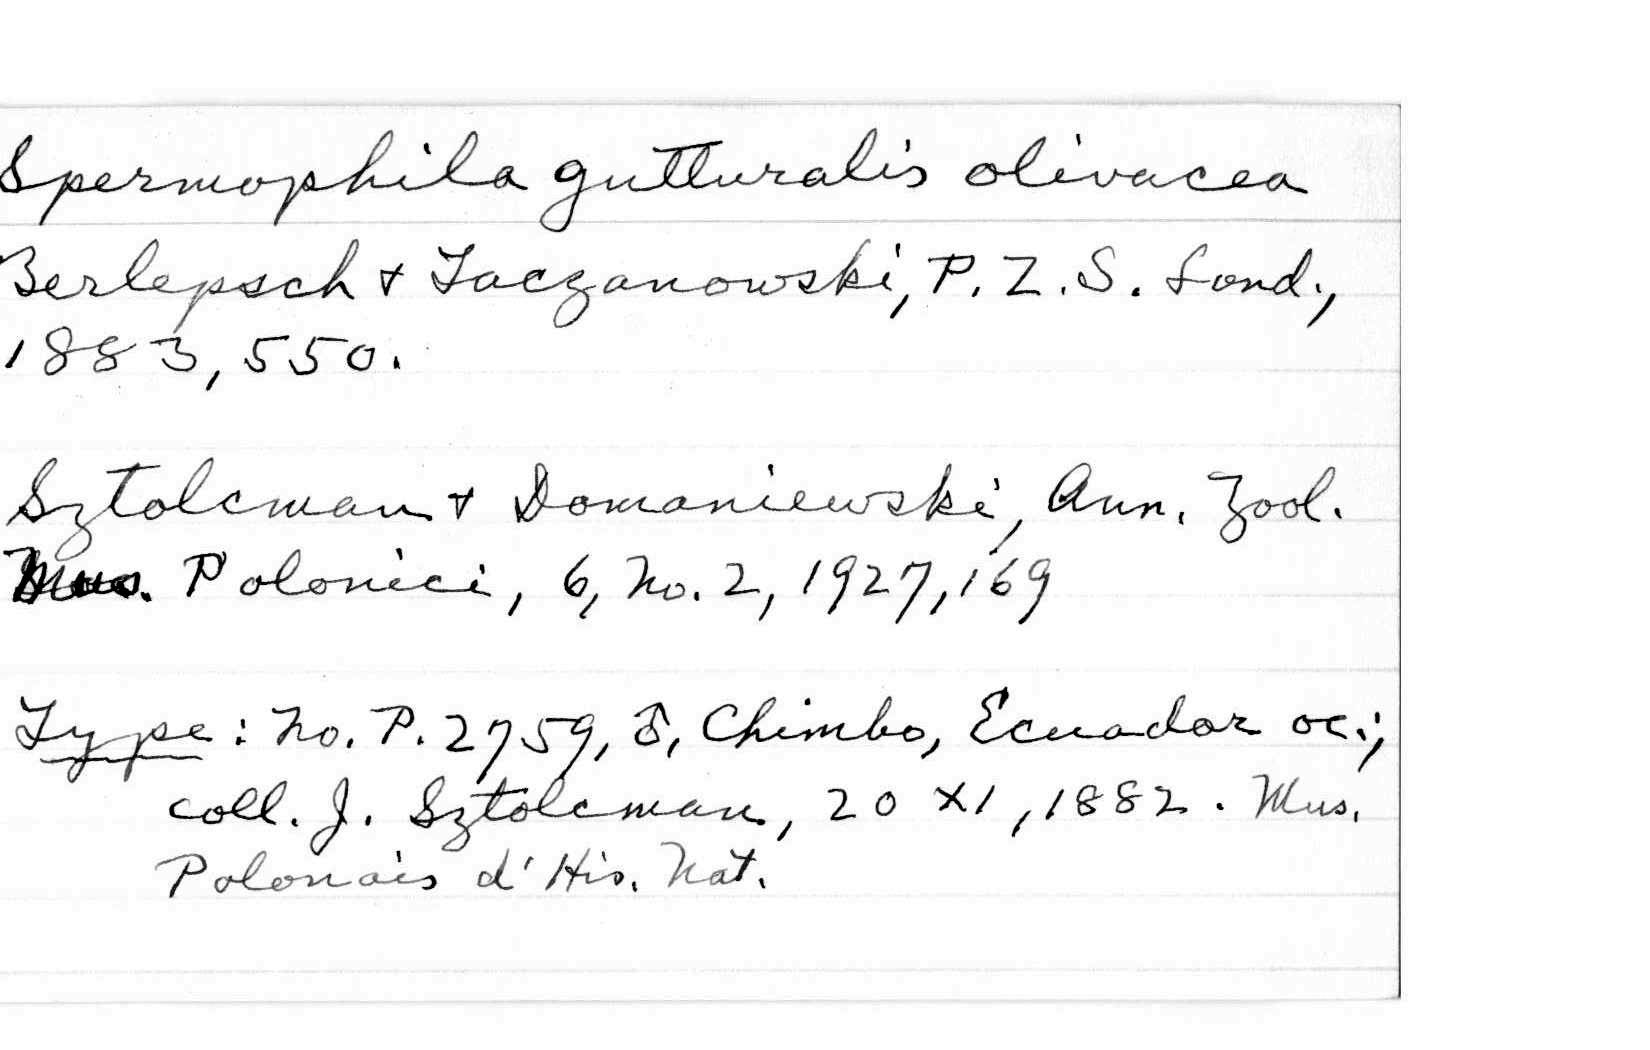 Spermophila gutturalis olivacea
Berlepsch & Taczanowski, P. Z. S. Lond.,
1883, 550.
Sztolcman & Domaniewski, Ann. Zool.
Mus. Polonici, 6, No. 2, 1927, 169
Type: No. P. 2759, ♂, Chimbo, Ecuador oc.;
coll. J. Sztolcman, 20 XI, 1882. Mus.
Polonais d'His. Nat.